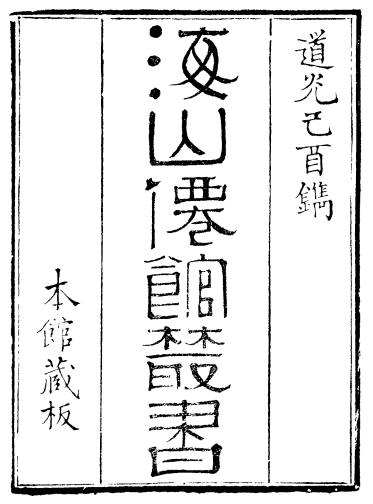 道光己酉鐫
海山僊館叢書
本館藏板